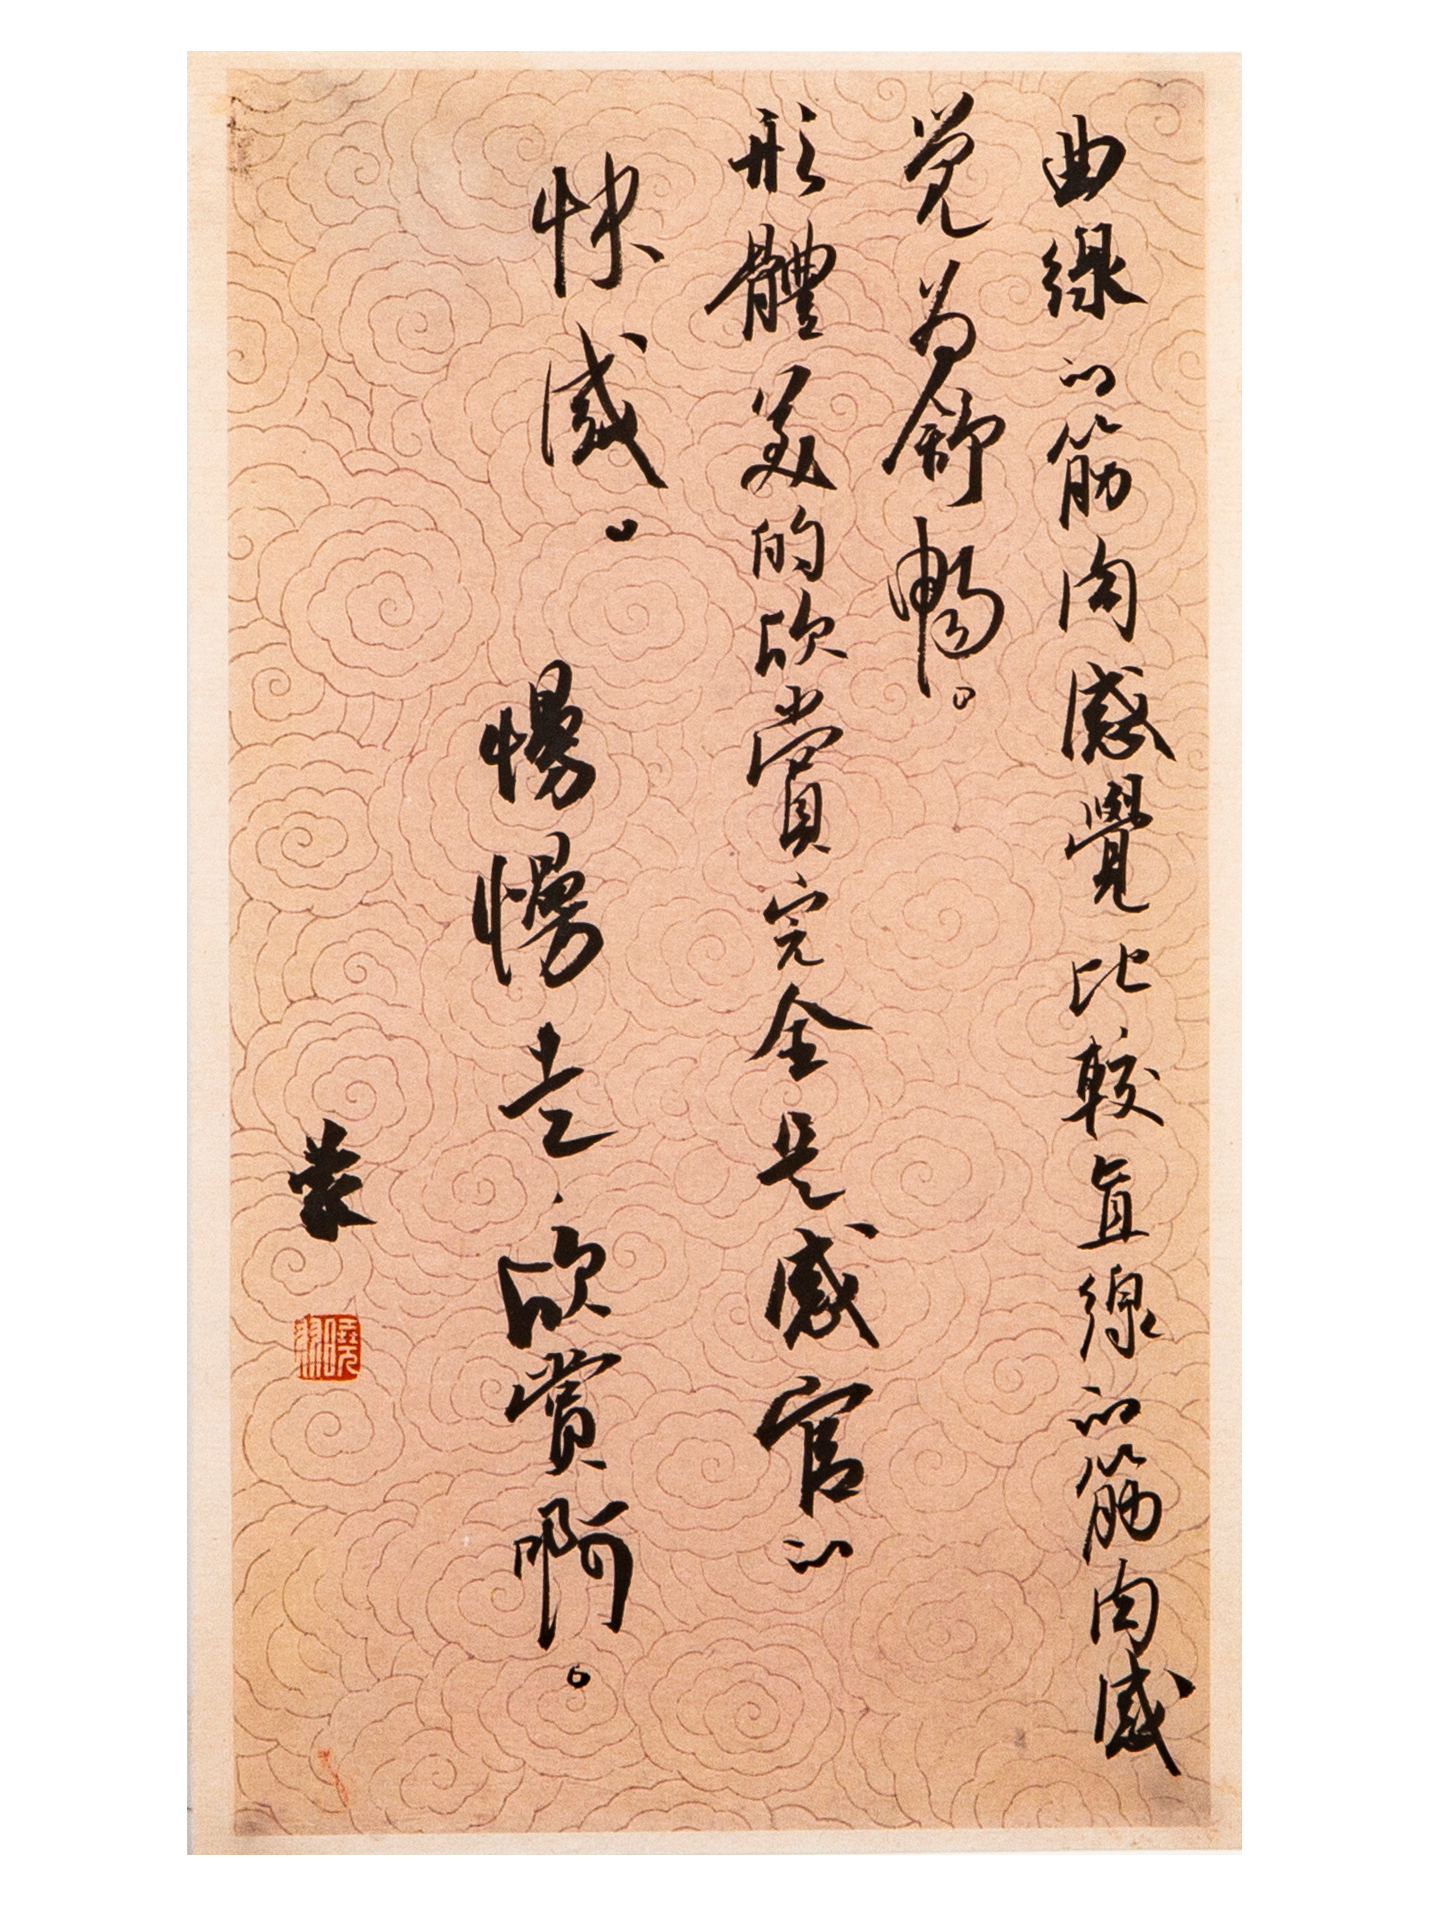 曲線的筋肉感覺比較直線的筋肉感
覺為舒暢。
形體美的欣賞完全是感官的
快感。
慢慢走.欣賞啊。